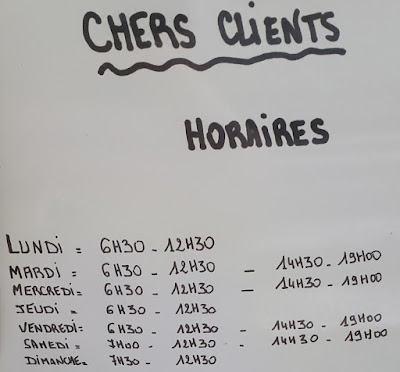 CHERS CLIENTS
HORAIRES
LUNDI = 6H30 - 12H30
MARDI = 6H30 - 12H30 - 14H30 - 19H00
MERCREDI= 6H30 - 12H30 - 14H30 - 19H00
JEUDI = 6H30 - 12H30
VENDREDI= 6H30 - 12H30 - 14H30 - 19H00
SAMEDI = 7H00 - 12H30 - 14H30 - 19H00
DIMANCHE= 7H30 - 12H30